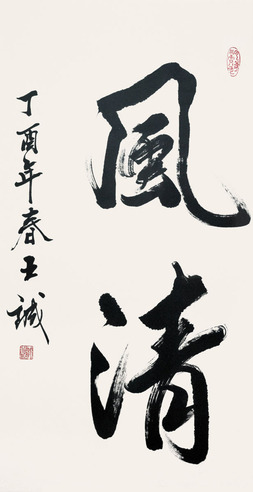 風清
丁酉年春王誠